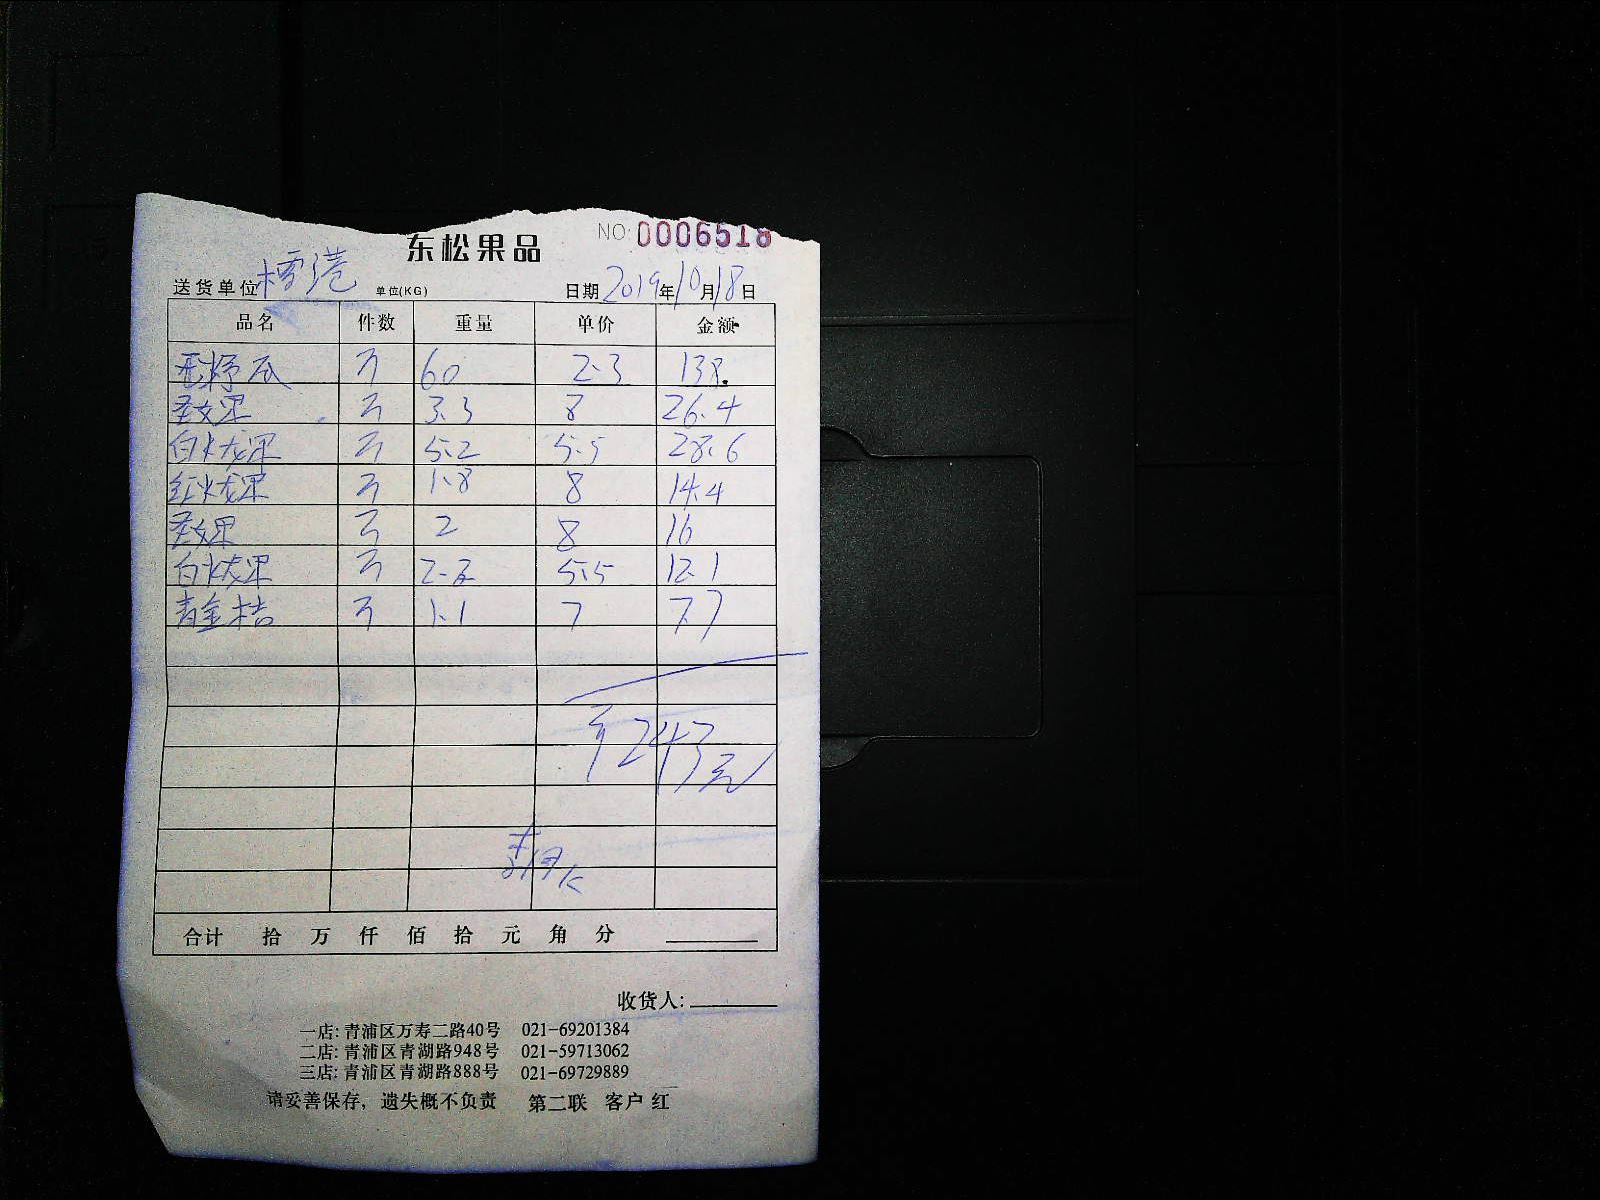 东松果品 NO: 0006518
送货单位 单位(KG) 日期 2019年10月18日
品名 件数 重量 单价 金额
60 2.3 138.
圣女果 3.3 8 26.4
白火龙果 5.2 5.5 28.6
红火龙果 1.8 8 14.4
圣女果 2 8 16
白火龙果 2.2 5.5 12.1
青金桔 1.1 7 7.7
243元
合计 拾 万 仟 佰 拾 元 角 分
收货人:
一店:青浦区万寿二路40号 021-69201384
二店:青浦区青湖路948号 021-59713062
三店:青浦区青湖路888号 021-69729889
请妥善保存，遗失概不负责 第二联 客户 红